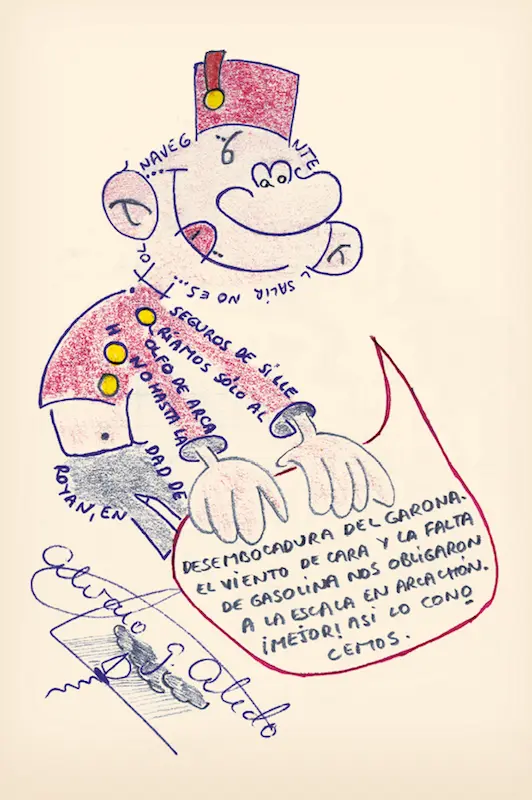 ...NAVEG
NTE
L SALIR NO ES...
SEGUROS DE SI LLE
RÍAMOS SÓLO AL
OLFO DE ARCA
H
NO HASTA LA
DAD DE
ROYAN, EN
DESEMBOCADURA DEL GARONA.
EL VIENTO DE CARA Y LA FALTA
DE GASOLINA NOS OBLIGARON
A LA ESCALA EN ARCACHÓN.
¡MEJOR! ASÍ LO CONO
CEMOS.
Alvaro G. Aledo